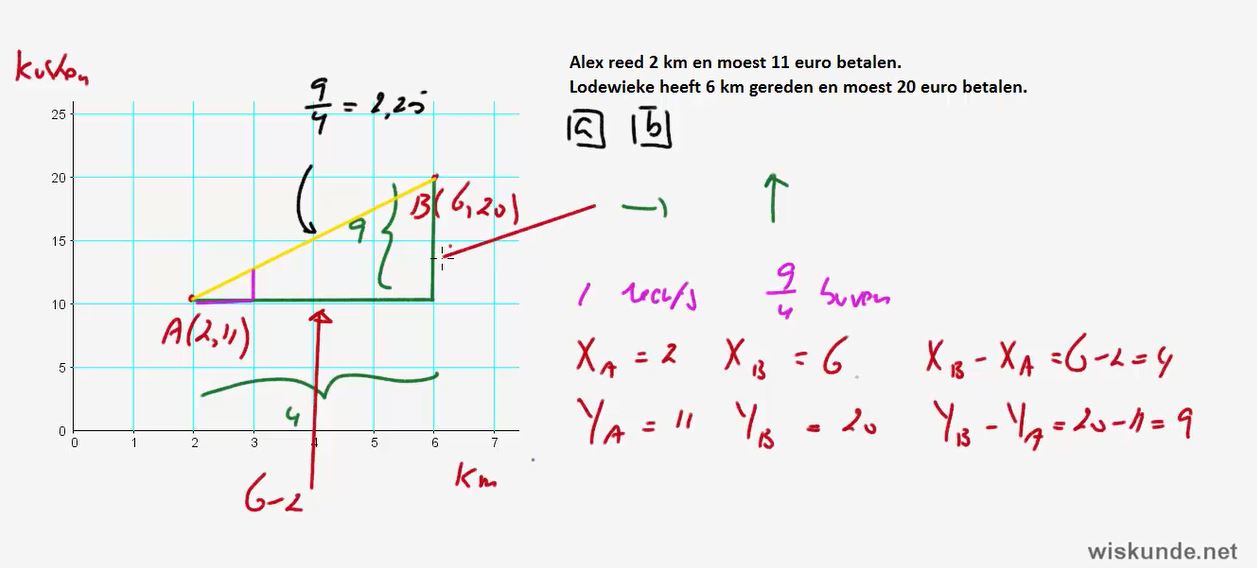 kosten
Alex reed 2 km en moest 11 euro betalen.
Lodewieke heeft 6 km gereden en moest 20 euro betalen.
9/4 = 2,25
a b
25
20
15
10
5
0
B(6,20)
9
A(2,11)
→ ↑
1 rechts 9/4 boven
X_A = 2 X_B = 6 X_B - X_A = 6-2 = 4
Y_A = 11 Y_B = 20 Y_B - Y_A = 20-11 = 9
4
0 1 2 3 4 5 6 7
6-2
km
wiskunde.net